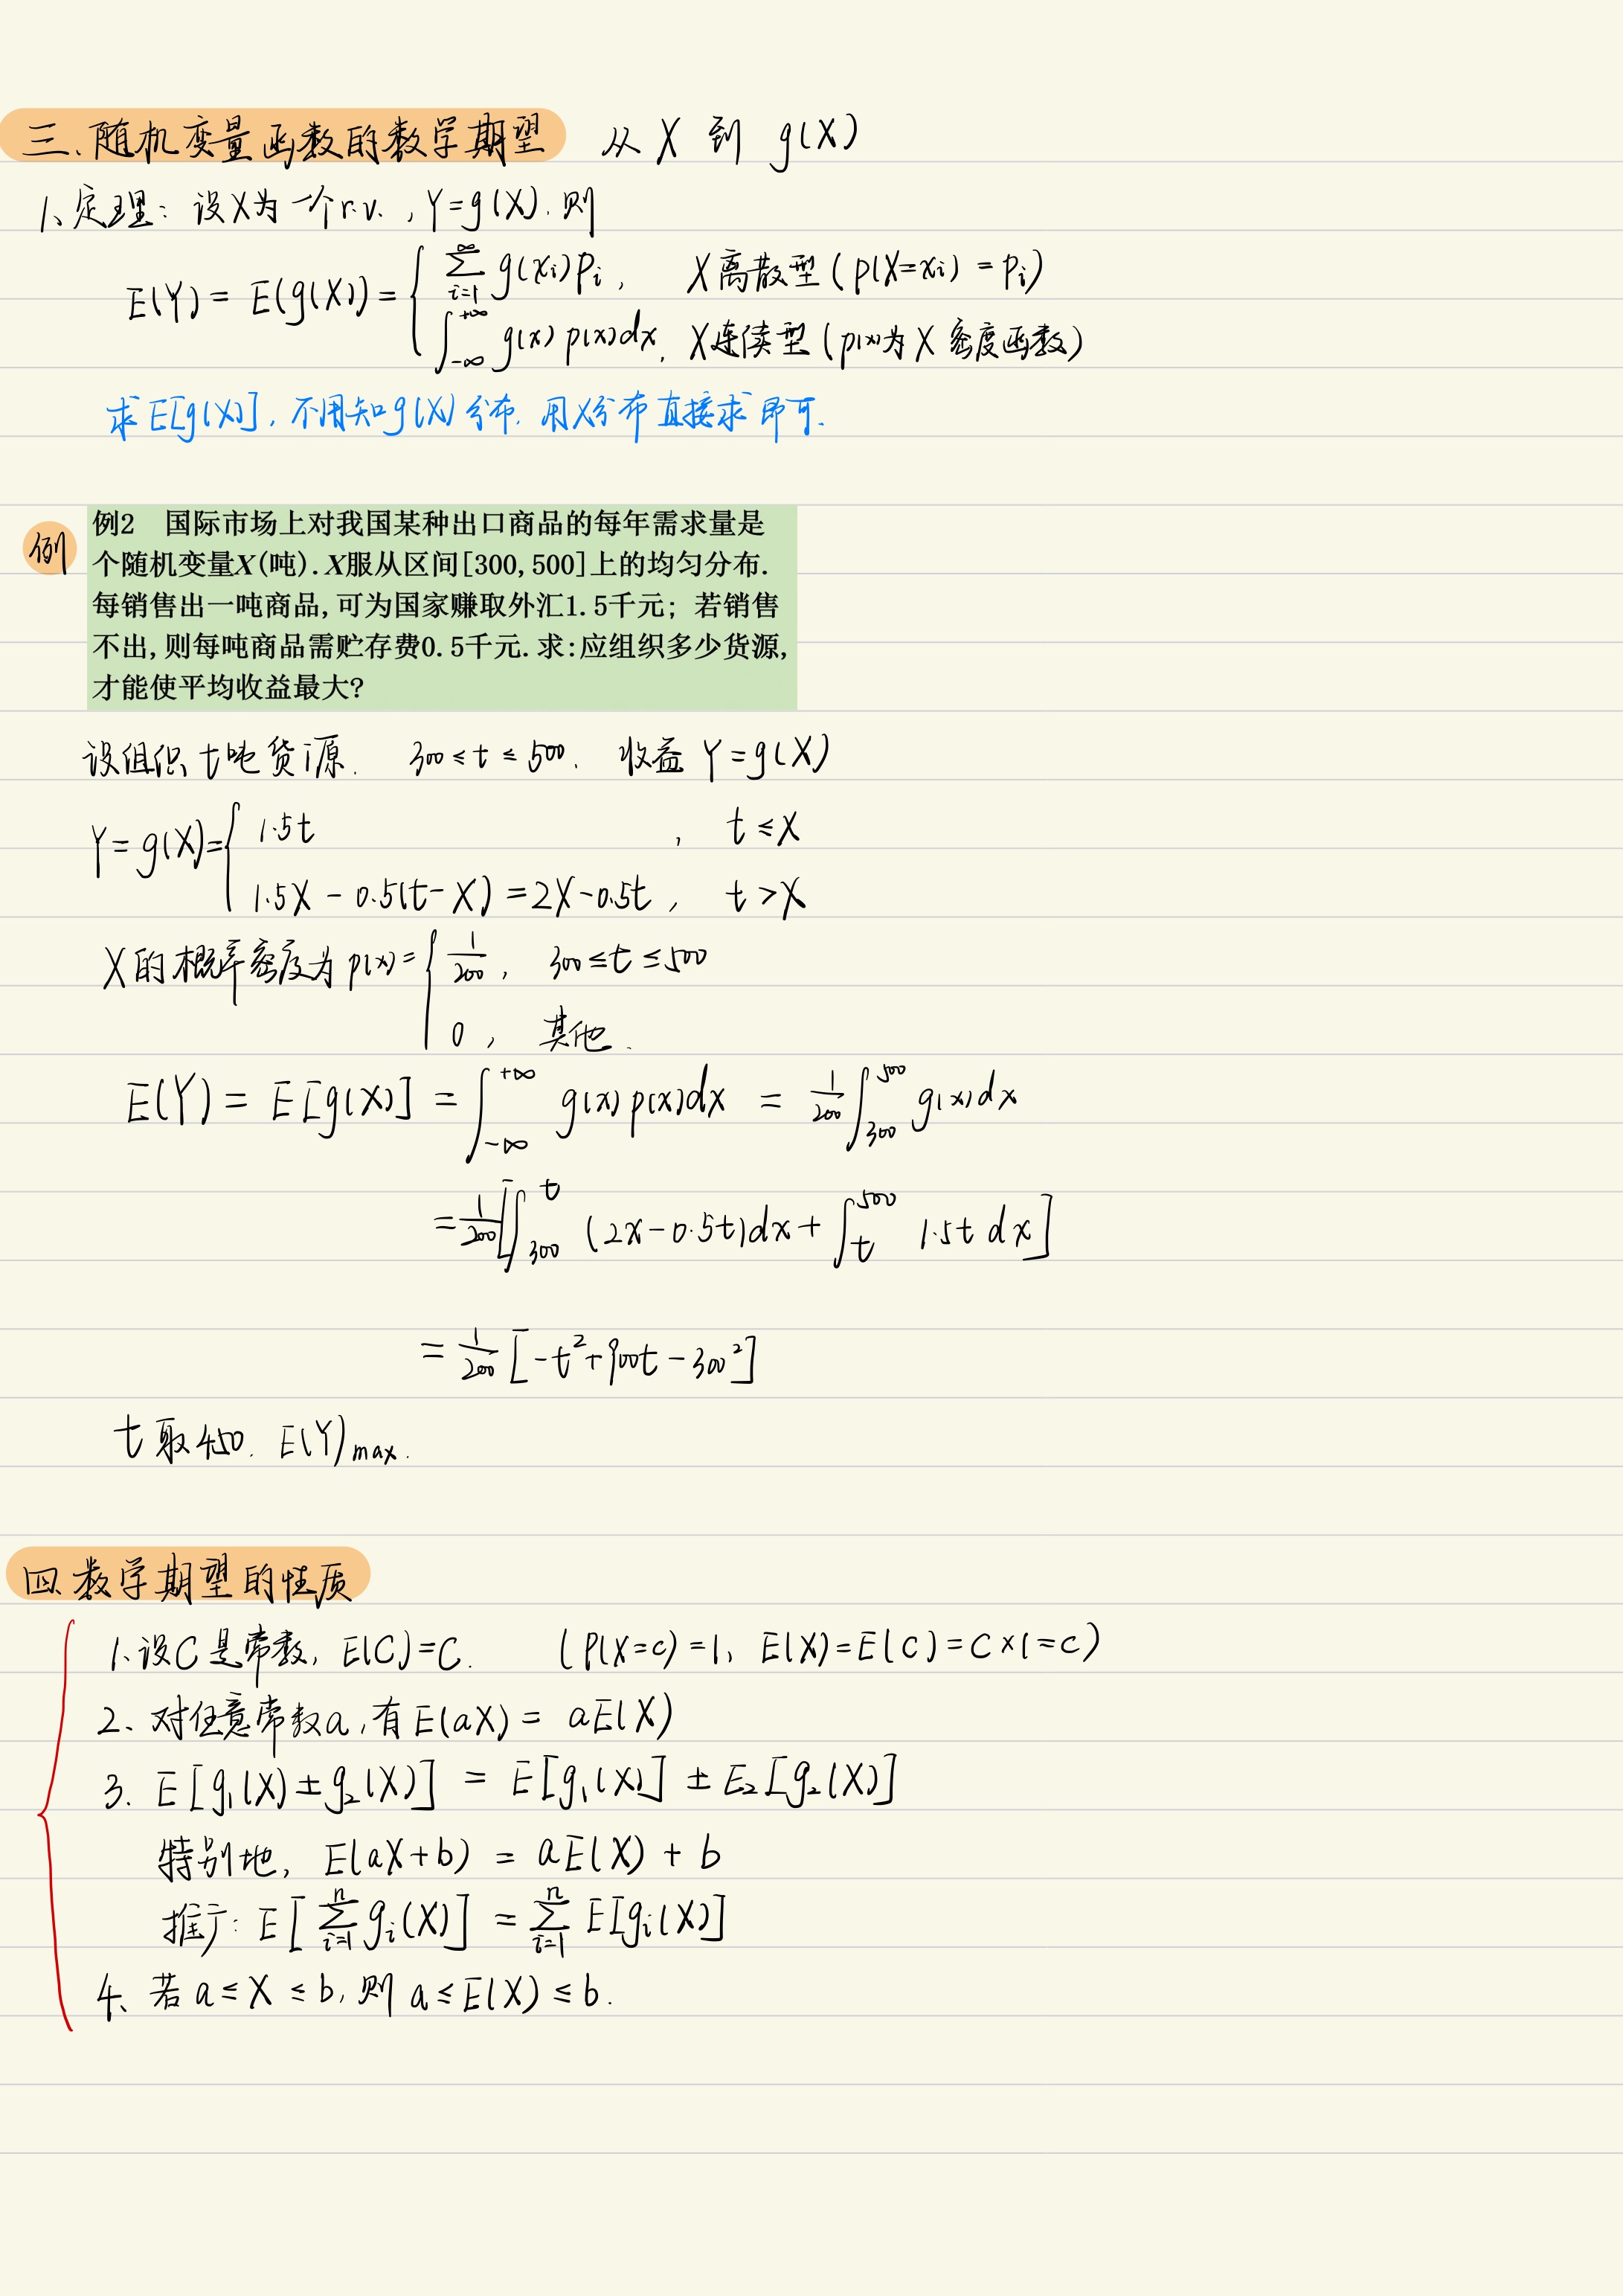 三、随机变量函数的数学期望 从 X 到 g(X)
1、定理：设X为一个r.v.，Y=g(X). 则
E(Y) = E(g(X)) = { ∑_{i=1}^{∞} g(x_i)p_i， X离散型 (p(X=x_i) = p_i)
∫_{-∞}^{+∞} g(x) p(x)dx， X连续型 (p(x)为X密度函数)
求E[g(X)]，不用知g(X)分布，用X分布直接求即可.
例
例2 国际市场上对我国某种出口商品的每年需求量是
个随机变量X(吨).X服从区间[300,500]上的均匀分布.
每销售出一吨商品,可为国家赚取外汇1.5千元; 若销售
不出,则每吨商品需贮存费0.5千元.求:应组织多少货源,
才能使平均收益最大?
设组织t吨货源. 300≤t≤500. 收益 Y=g(X)
Y=g(X)={ 1.5t ， t≤X
1.5X - 0.5(t-X) = 2X-0.5t， t>X
X的概率密度为p(x)={ 1/200， 300≤t≤500
0， 其他.
E(Y) = E[g(X)] = ∫_{-∞}^{+∞} g(x)p(x)dx = 1/200 ∫_{300}^{500} g(x)dx
= 1/200 [∫_{300}^{t} (2x-0.5t)dx + ∫_{t}^{500} 1.5t dx]
= 1/200 [-t²+900t-300²]
t取450. E(Y)max.
四、数学期望的性质
1、设C是常数，E(C)=C. (P(X=c)=1，E(X)=E(C)=C×1=c)
2、对任意常数a，有E(aX) = aE(X)
3. E[g₁(X)±g₂(X)] = E[g₁(X)] ± E₂[g₂(X)]
特别地，E(aX+b) = aE(X) + b
推广：E[∑_{i=1}^{n} g_i(X)] = ∑_{i=1}^{n} E[g_i(X)]
4、若a≤X≤b，则a≤E(X)≤b.